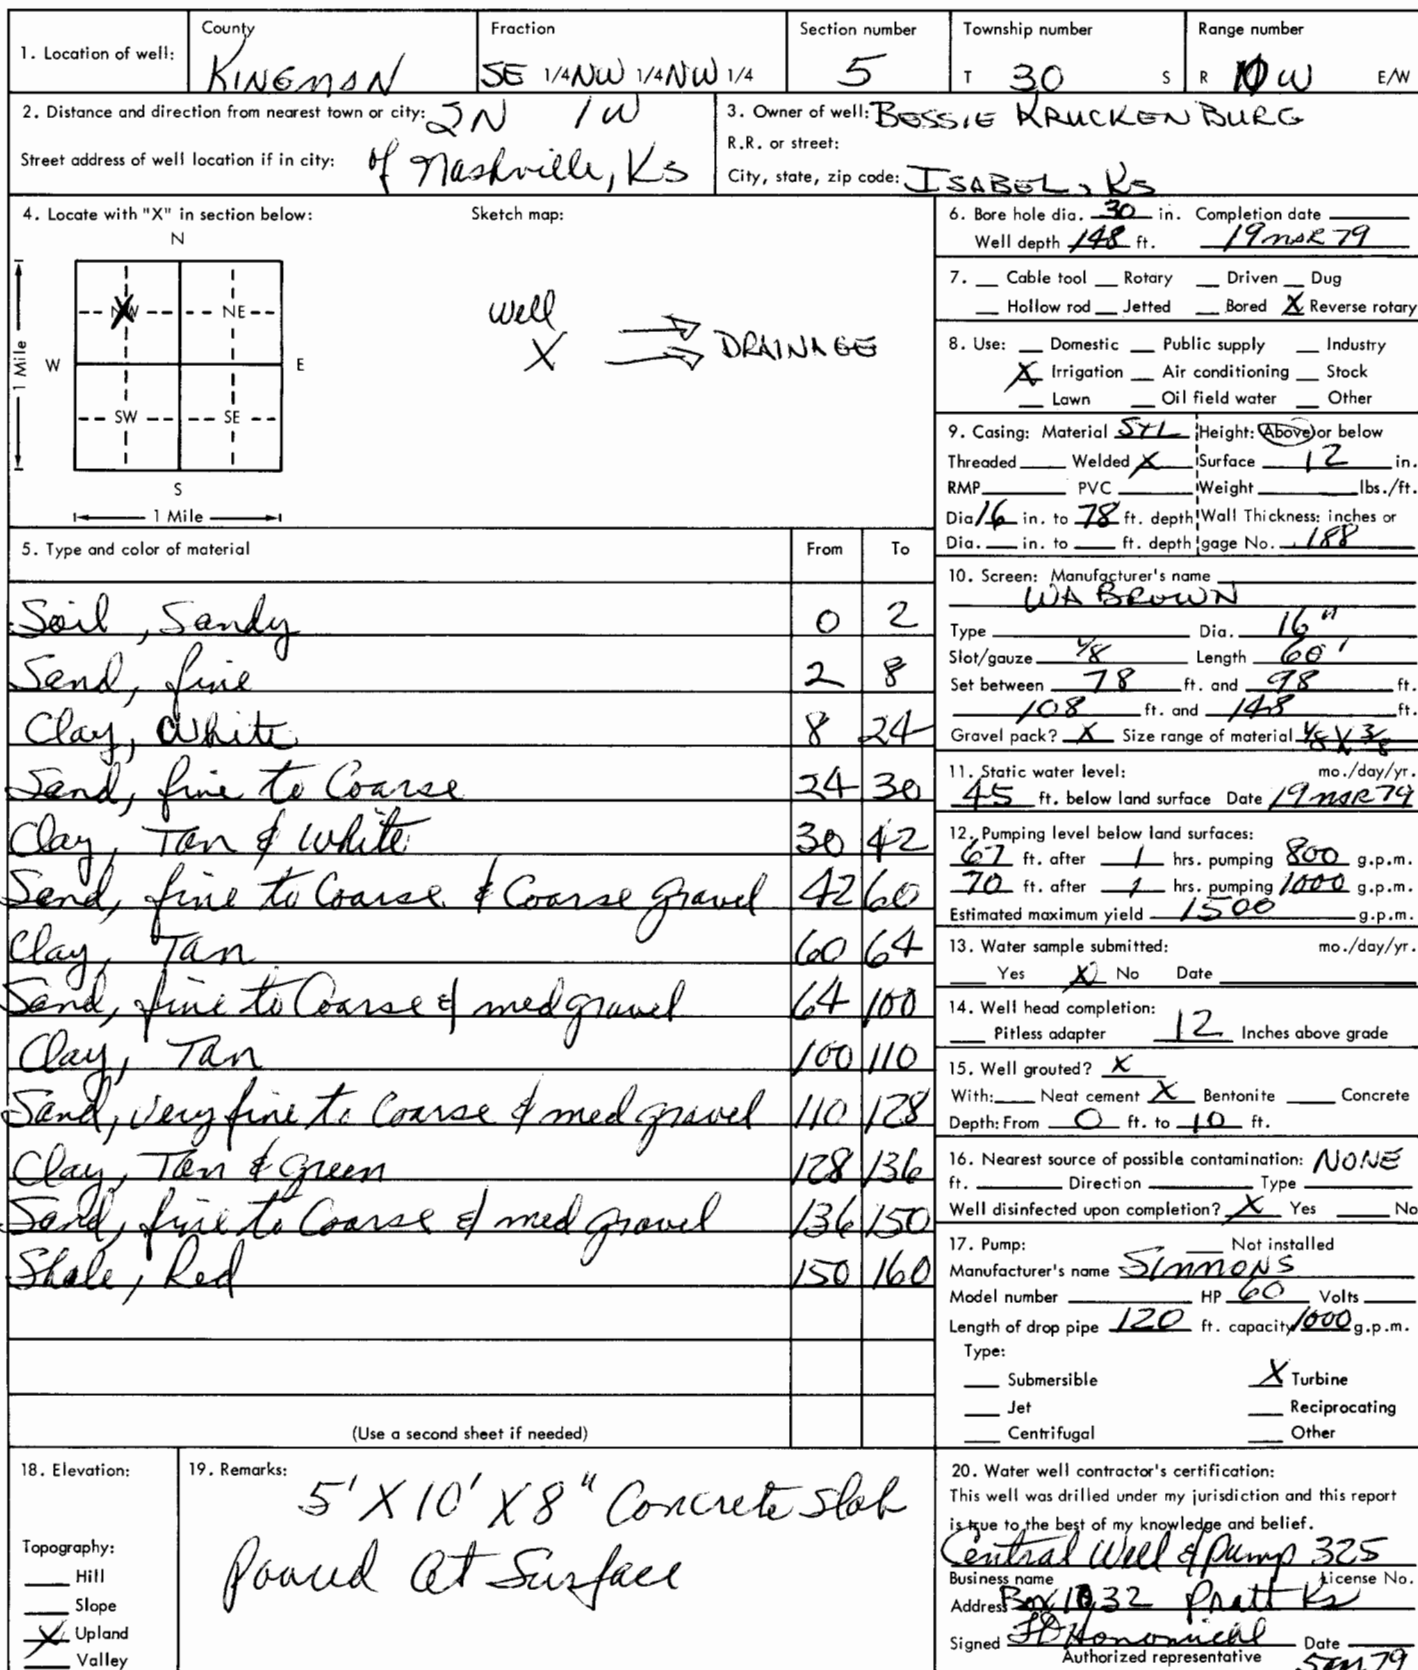 1. Location of well: County KINGMAN Fraction SE 1/4 NW 1/4 NW 1/4 Section number 5 Township number T 30 S Range number R 10 W E/W
2. Distance and direction from nearest town or city: 2N 1W
Street address of well location if in city: of Nashville, Ks
3. Owner of well: BESSIE KRUCKENBURG
R.R. or street:
City, state, zip code: ISABEL, Ks
4. Locate with "X" in section below:
N
NW NE
W E
SW SE
S
1 Mile
1 Mile
Sketch map:
well
X DRAINAGE
5. Type and color of material From To
Soil, Sandy 0 2
Sand, fine 2 8
Clay, White 8 24
Sand, fine to Coarse 24 30
Clay, Tan & White 30 42
Sand, fine to Coarse & Coarse gravel 42 60
Clay, Tan 60 64
Sand, fine to Coarse & med gravel 64 100
Clay, Tan 100 110
Sand, very fine to Coarse & med gravel 110 128
Clay, Tan & Green 128 136
Sand, fine to Coarse & med gravel 136 150
Shale, Red 150 160
(Use a second sheet if needed)
6. Bore hole dia. 30 in. Completion date
Well depth 148 ft. 19 MAR 79
7. Cable tool Rotary Driven Dug
Hollow rod Jetted Bored X Reverse rotary
8. Use: Domestic Public supply Industry
X Irrigation Air conditioning Stock
Lawn Oil field water Other
9. Casing: Material STL Height: Above or below
Threaded Welded X Surface 12 in.
RMP PVC Weight lbs./ft.
Dia 16 in. to 78 ft. depth Wall Thickness: inches or
Dia. in. to ft. depth gage No. .188
10. Screen: Manufacturer's name
WA BROWN
Type Dia. 16"
Slot/gauze 1/8 Length 60'
Set between 78 ft. and 98 ft.
108 ft. and 148 ft.
Gravel pack? X Size range of material 1/8 X 3/8
11. Static water level: mo./day/yr.
45 ft. below land surface Date 19 MAR 79
12. Pumping level below land surfaces:
67 ft. after 1 hrs. pumping 800 g.p.m.
70 ft. after 1 hrs. pumping 1000 g.p.m.
Estimated maximum yield 1500 g.p.m.
13. Water sample submitted: mo./day/yr.
Yes X No Date
14. Well head completion:
Pitless adapter 12 Inches above grade
15. Well grouted? X
With: Neat cement X Bentonite Concrete
Depth: From 0 ft. to 10 ft.
16. Nearest source of possible contamination: NONE
ft. Direction Type
Well disinfected upon completion? X Yes No
17. Pump: Not installed
Manufacturer's name SIMMONS
Model number HP 60 Volts
Length of drop pipe 120 ft. capacity 1000 g.p.m.
Type:
Submersible X Turbine
Jet Reciprocating
Centrifugal Other
18. Elevation:
Topography:
Hill
Slope
X Upland
Valley
19. Remarks: 5' X 10' X 8" Concrete Slab
Poured At Surface
20. Water well contractor's certification:
This well was drilled under my jurisdiction and this report
is true to the best of my knowledge and belief.
Central Well & Pump 325
Business name License No.
Address Box 1032 Pratt Ks
Signed Date
Authorized representative